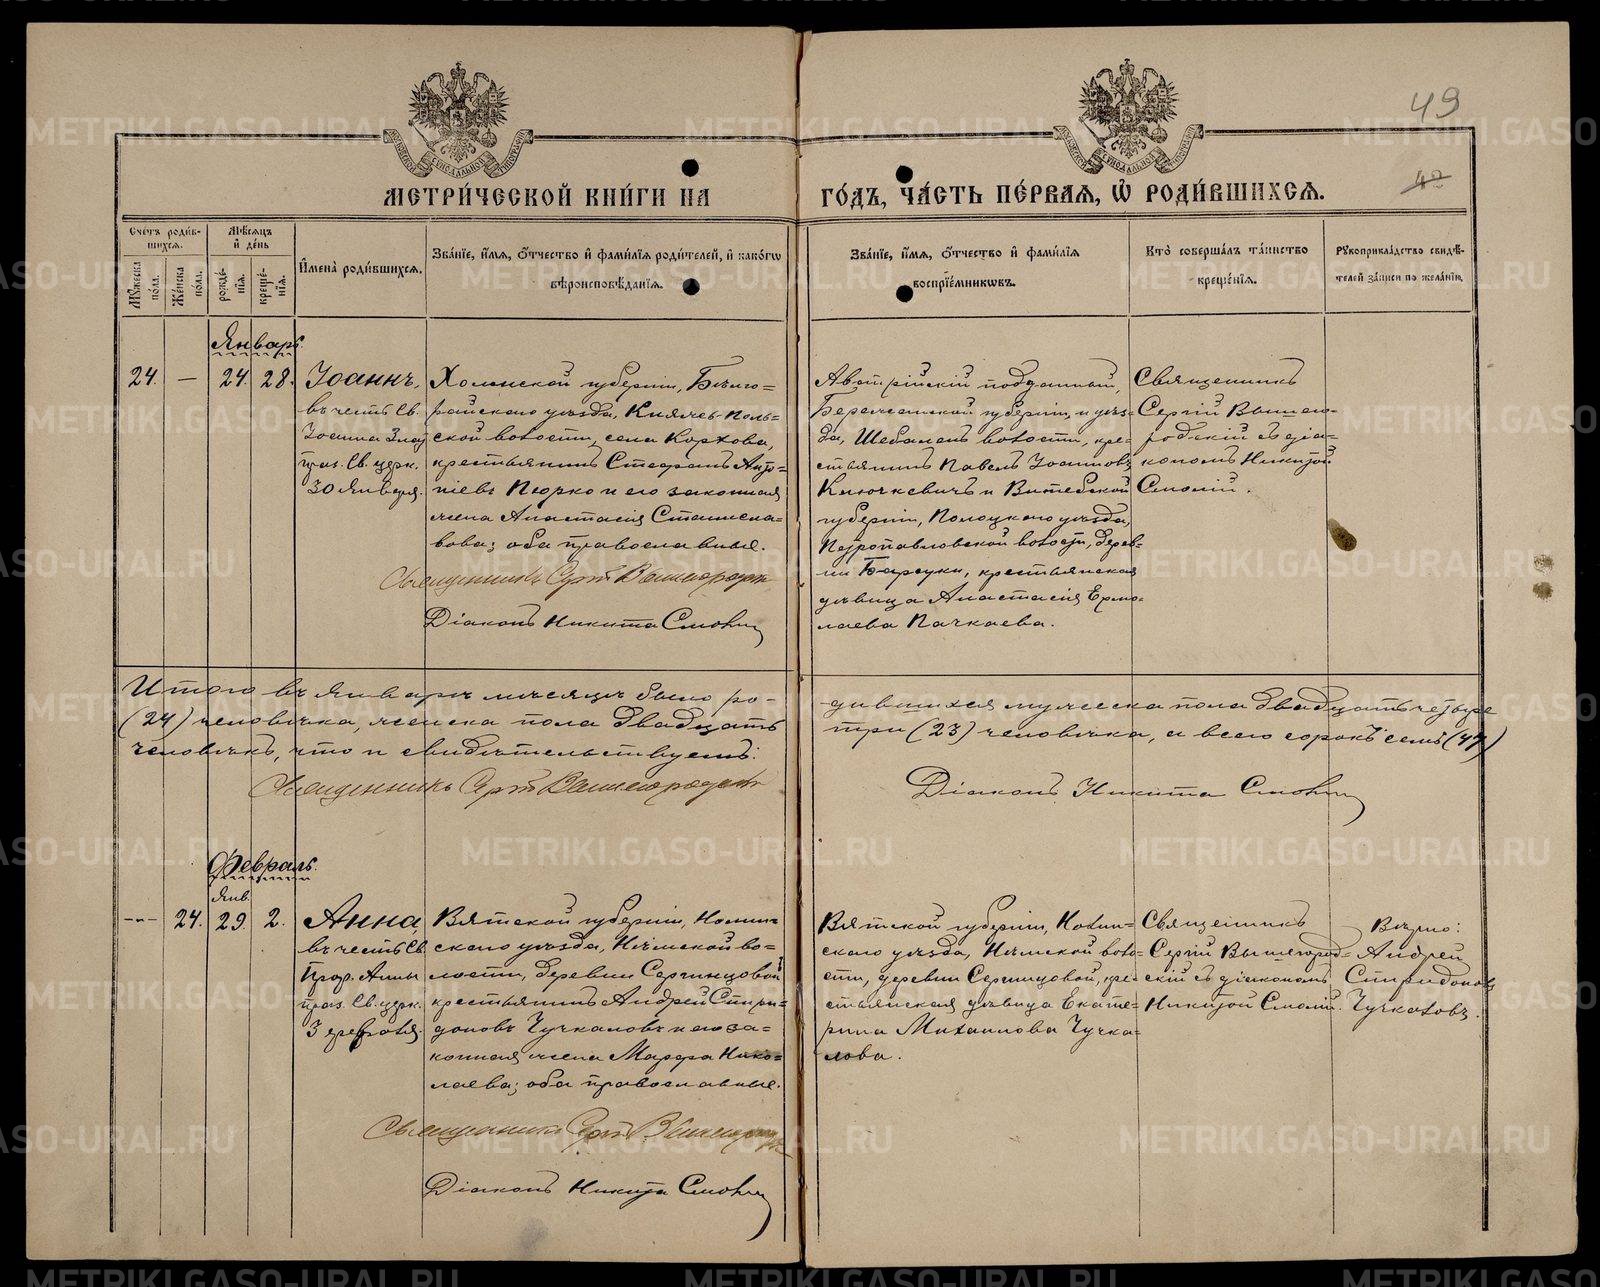 49
42
МЕТРИ́ЧЕСКОЙ КНИ́ГИ НА
ГО́ДЪ, ЧА́СТЬ ПЕ́РВАѦ, Ѡ҆ РОДИ́ВШИХСѦ.
Сче́тъ роди́вшихсѧ.
Мꙋ́жеска по́ла.
Же́нска по́ла.
Мѣ́сѧцъ и҆ де́нь
рожде́нїѧ.
креще́нїѧ.
И҆мена̀ роди́вшихсѧ.
Зва́нїе, и҆́мѧ, ѻ҆́тчество и҆ фами́лїѧ роди́телей, и҆ како́гѡ
вѣроисповѣ́данїѧ.
Зва́нїе, и҆́мѧ, ѻ҆́тчество и҆ фами́лїѧ
воспрїе́мникѡвъ.
Кто̀ соверша́лъ та́инство
креще́нїѧ.
Рꙋкоприкла́дство свидѣ́-
телей за́писи по жела́нїю.
Январь.
24. — 24. 28.
Іоаннъ,
въ честь Св.
Іоанна Злат.
праз. Св. церк.
30 Января.
Холмской губерніи, Бѣлго-
райскаго уѣзда, Княжъ-Поль-
ской волости, села Корхова,
крестьянинъ Стефанъ Анто-
ніевъ Пюрко и его законная
жена Анастасія Станисла-
вова; оба православные.
Священникъ Сергій Вышегородскій
Діаконъ Никита Смолій
Австрійскій подданный,
Бережанской губерніи, и уѣз-
да, волости, кре-
стьянинъ Павелъ Іоанновъ
Ключкевичъ и Витебской
губерніи, Полоцкаго уѣзда,
Петропавловской волости, дерев-
ни Барсуки, крестьянская
дѣвица Анастасія Ермо-
лаева Пачкаева.
Священникъ
Сергій Вышего-
родскій съ діа-
кономъ Никитой
Смолій.
Итого въ Январѣ мѣсяцѣ было ро-
дившихся мужеска пола двадцать четыре
(24) человѣка, женска пола двадцать
три (23) человѣка, а всего сорокъ семь (47)
человѣкъ, что и свидѣтельствуемъ:
Священникъ Сергій Вышегородскій
Діаконъ Никита Смолій
Февраль.
Янв.
--- 24. 29. 2.
Анна,
въ честь Св.
Прор. Анны
праз. Св. церк.
3 февраля.
Вятской губерніи, Нолин-
скаго уѣзда, Нѣмской во-
лости, деревни Сергинцовой
крестьянинъ Андрей Спири-
доновъ Чучкаловъ и его за-
конная жена Марфа Нико-
лаева; оба православные.
Священникъ Сергій Вышегородскій
Діаконъ Никита Смолій
Вятской губерніи, Нолин-
скаго уѣзда, Нѣмской воло-
сти, деревни Сергинцовой, кре-
стьянская дѣвица Екате-
рина Михаилова Чучка-
лова.
Священникъ
Сергій Вышегород-
скій съ діакономъ
Никитой Смолій.
Вѣрно:
Андрей
Спиридоновъ
Чучкаловъ.
METRIKI.GASO-URAL.RU